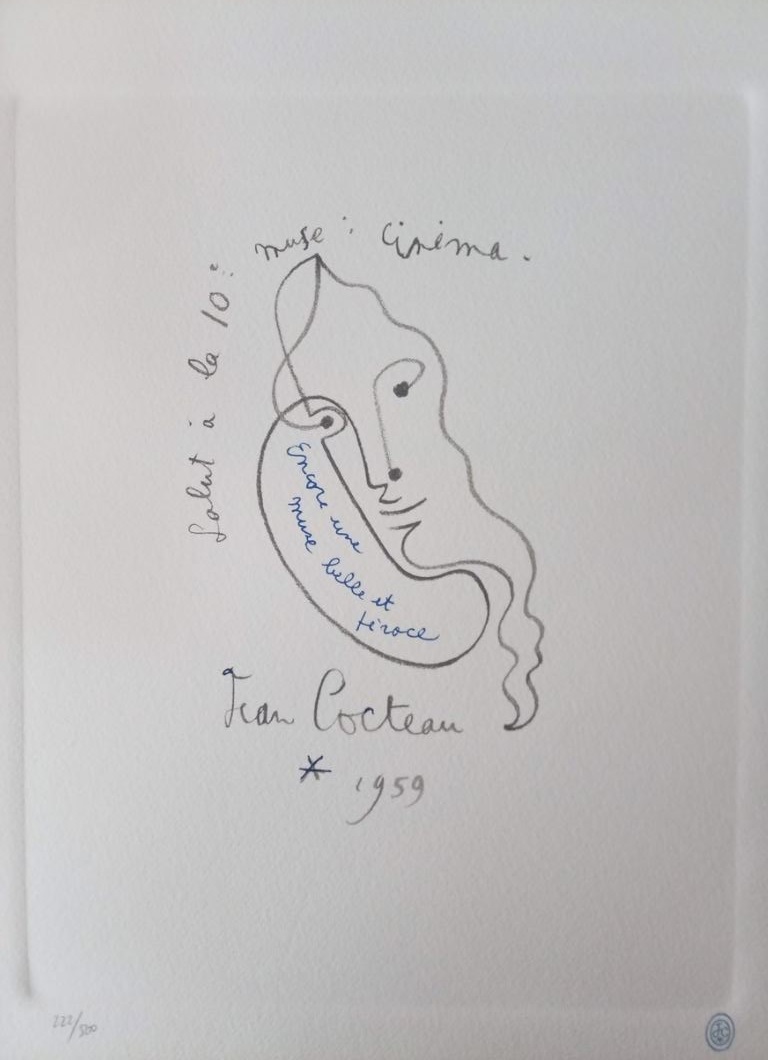 Salut à la 10e muse : Cinéma.
Encore une
muse belle et
féroce
Jean Cocteau
* 1959
222/500